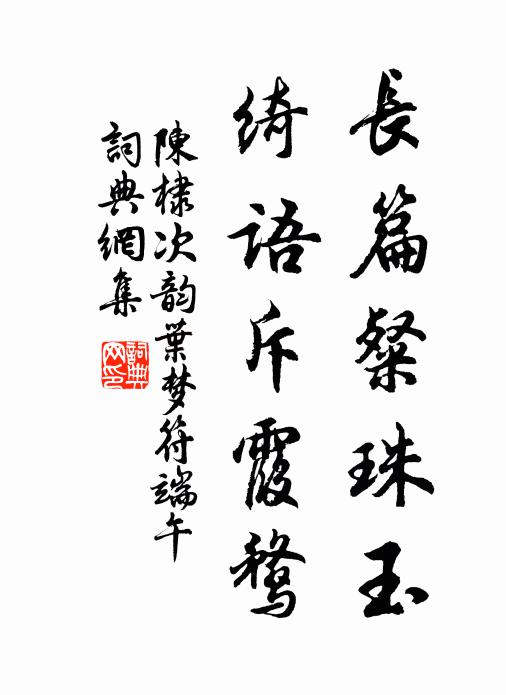 長篇粲珠玉
綺語斥霞鶩
陳棣次韵葉梦符端午
詞典網集
詞典网印